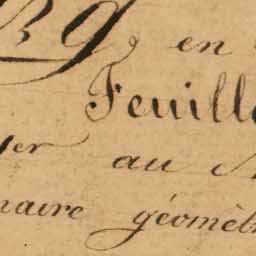 en
Feuill
er au
naire géomèt